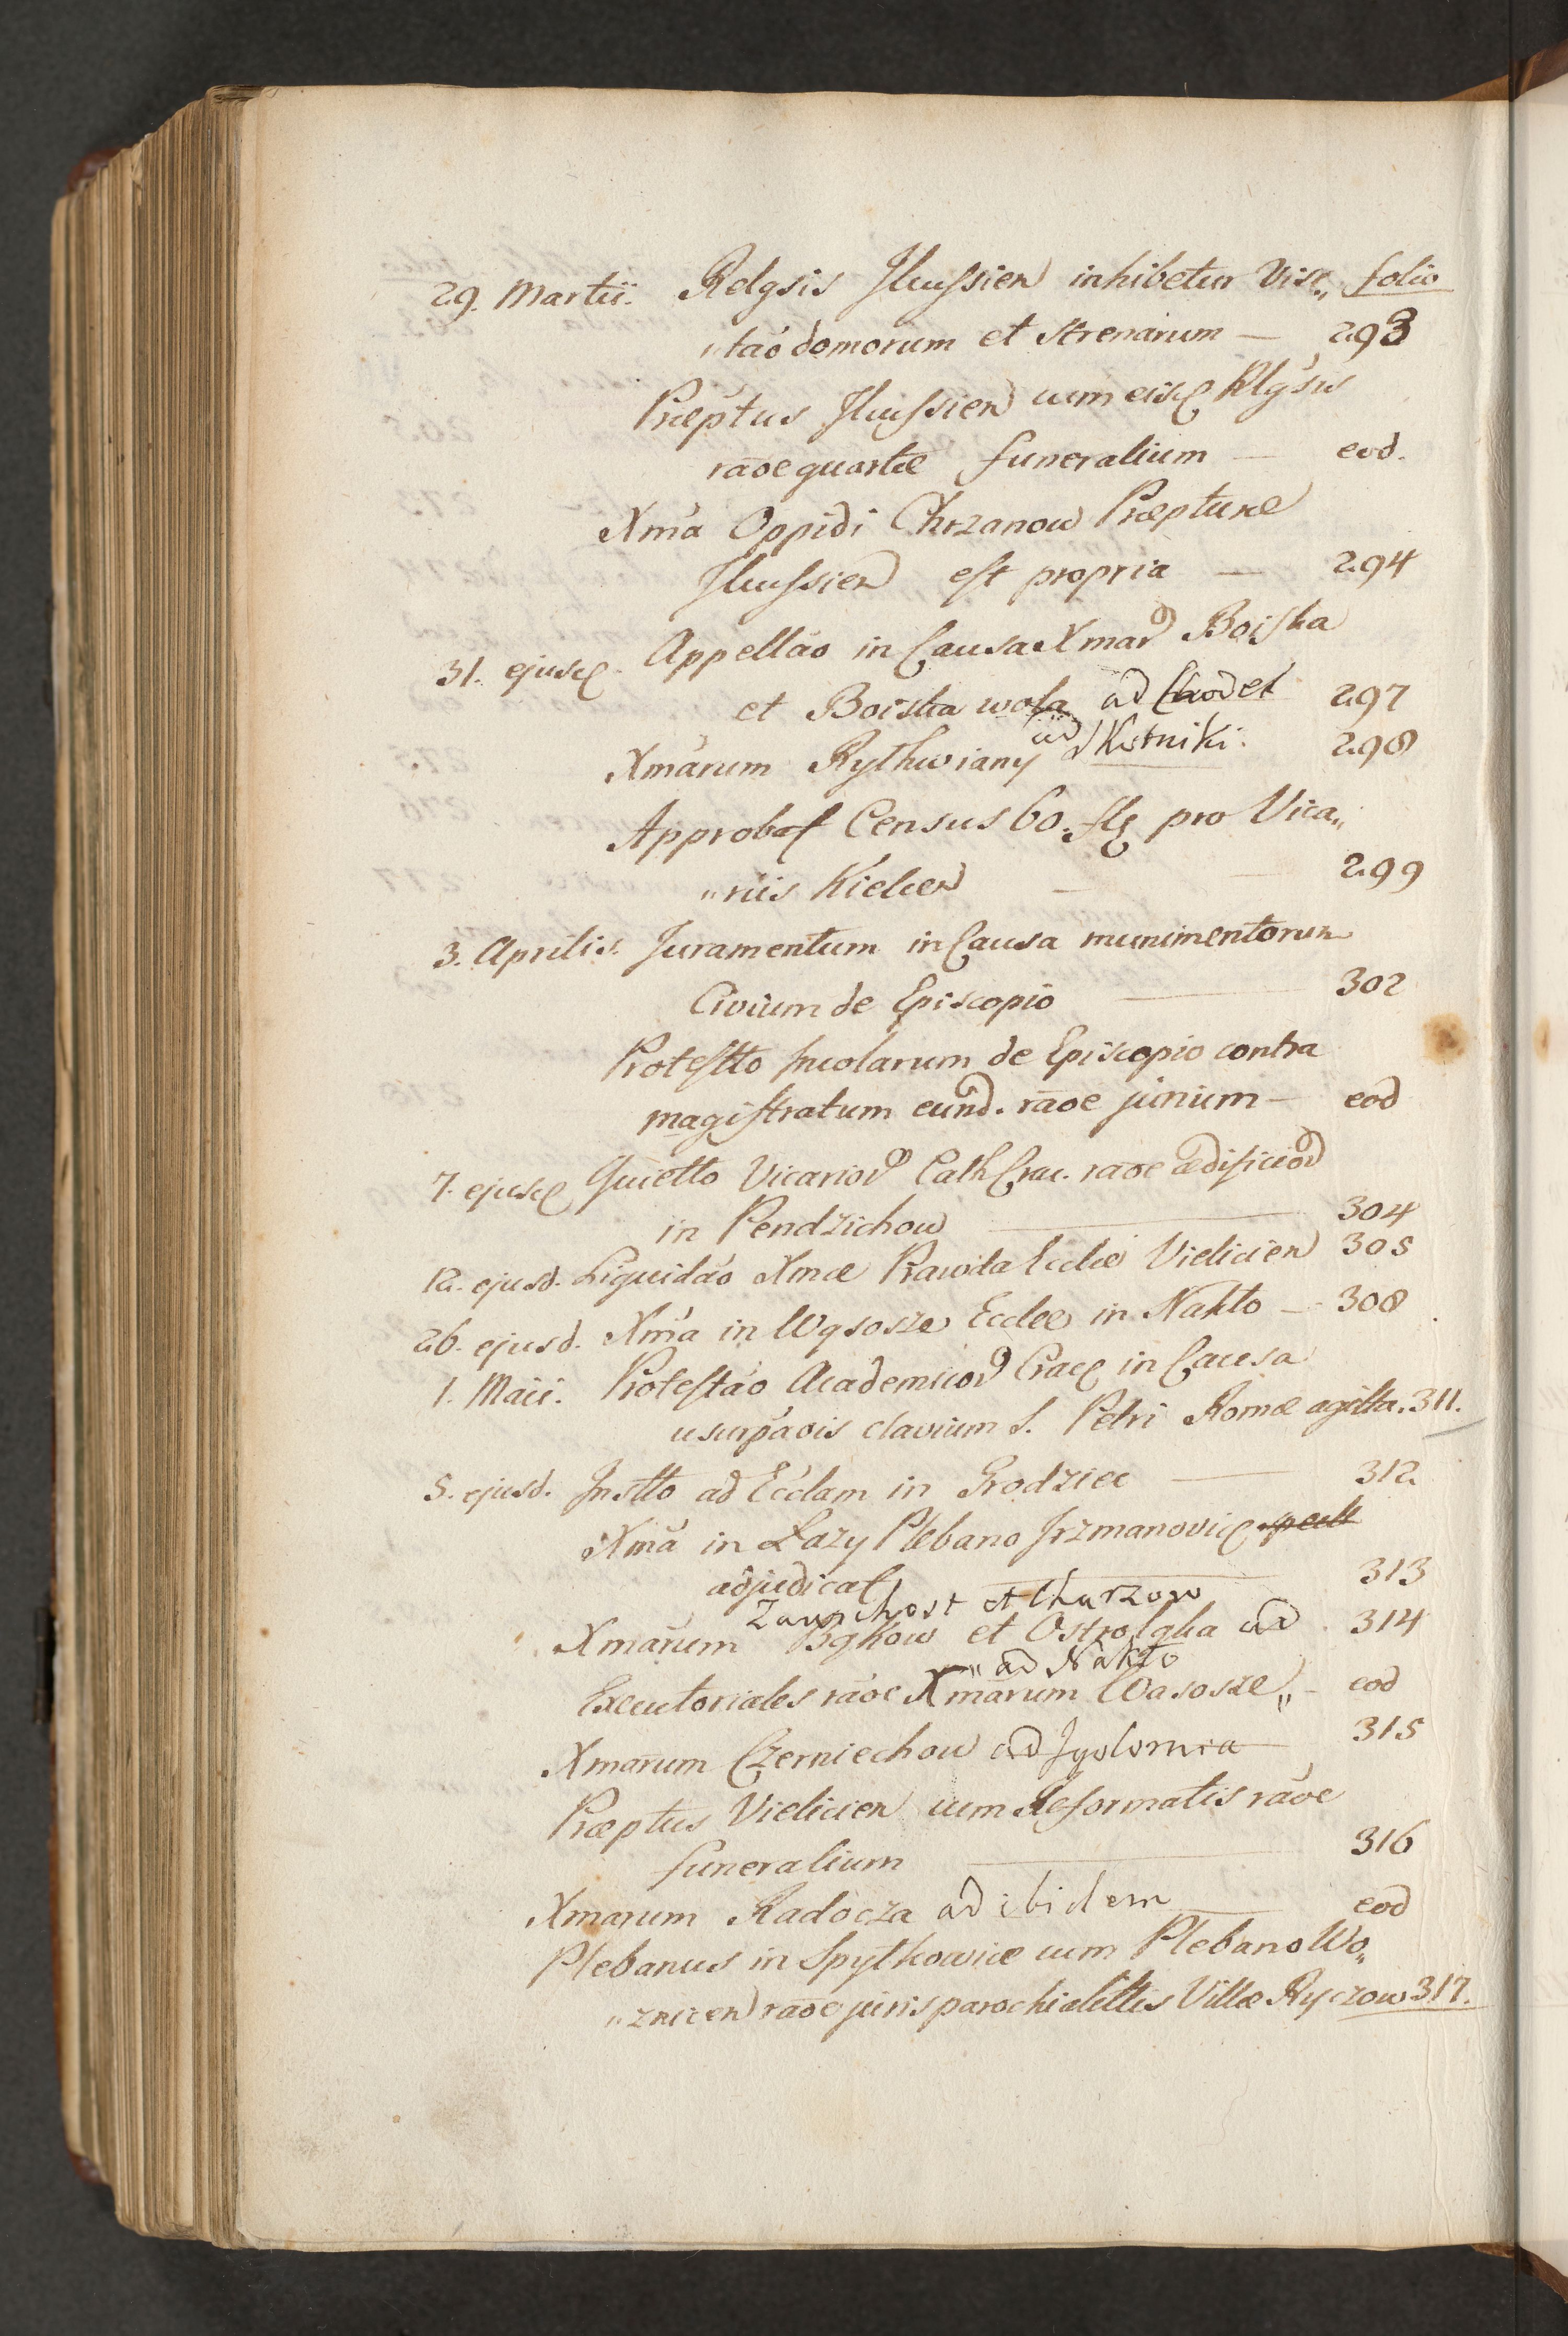 29. Martii. Relgsis Ilkussien inhibetur Visi„ folio
„tao domorum et strenarum — 293
Præptus Ilkussien cum eisd Rlgsis
raoe quartæ funeralium — eod.
Xma Oppidi Chrzanow Præpturæ
Ilkussien est propria — 294
31. ejusd. Appellao in Causa Xmar Boiska
et Boiska wola ad Chodel 297
Xmarum Rythwiany ad Kotniki. 298
Approbat Census 60. fl pro Vica„
„riis Kielcen — 299
3. Aprilis. Juramentum in Causa munimentorum
Civium de Episcopio — 302
Protestto Incolarum de Episcopio contra
magistratum eund. raoe jurium — eod
7. ejusd Quietto Vicarior Cath Crac. raoe ædificior
in Pendzichow — 304
12. ejusd. Liquidao Xmæ Prawda Ecclæ Vielicien 305
26. ejusd. Xma in Wąsosze Ecclæ in Nakło — 308
1. Maii. Protestao Academicor Crac in Causa
usurpaois clavium S. Petri Romæ agitta. 311.
5. ejusd. Instto ad Ecclam in Grodziec — 312
Xma in Łazy Plebano Jrzmanovic
adjudicat — 313
Zawichost et Charzow
Xmarum Bąkow et Ostrołęka ad 314
„ad Nakło
Executoriales raoe Xmarum Wasosze„ — eod
Xmarum Czerniechow ad Igolomia 315
Præptus Vielicien cum Reformatis raoe
funeralium — 316
Xmarum Radocza ad ibidem — eod
Plebanus in Spytkowice cum Plebano Wo„
„znicen raoe juris parochialittis Villæ Ryczow 317.